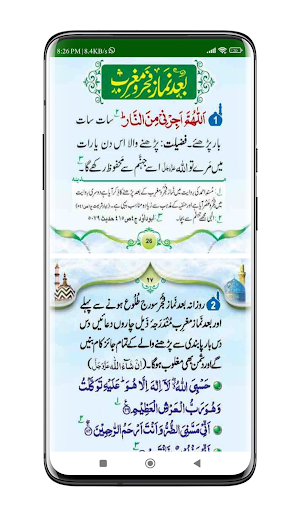 8:26 PM | 8.4KB/s
بعدِ نمازِ فجر و مغرب
1 اَللّٰهُمَّ اَجِرْنِیْ مِنَ النَّارِ سات سات
بار پڑھئے۔ فضیلت: پڑھنے والا اس دن یا رات
میں مرے تو اللہ عزوجل اسے جہنّم سے محفوظ رکھے گا۔
26
۲۷
2 روزانہ بعد نمازِ فجر سورج طُلُوع ہونے سے پہلے
اور بعد نمازِ مغرب مُنْدَرَجہ ذیل چاروں دعائیں دس
دس بار پابندی سے پڑھنے والے کے تمام جائز کام بنیں
گے اور دشمن بھی مغلوب ہوگا۔ (اِنْ شَآءَ اللہ عَزَّوَجَلَّ)
حَسْبِیَ اللّٰهُ لَاۤ اِلٰهَ اِلَّا هُوَ عَلَیْهِ تَوَكَّلْتُ
وَهُوَ رَبُّ الْعَرْشِ الْعَظِیْمِ
اَنِّیْ مَسَّنِیَ الضُّرُّ وَاَنْتَ اَرْحَمُ الرّٰحِمِیْنَ